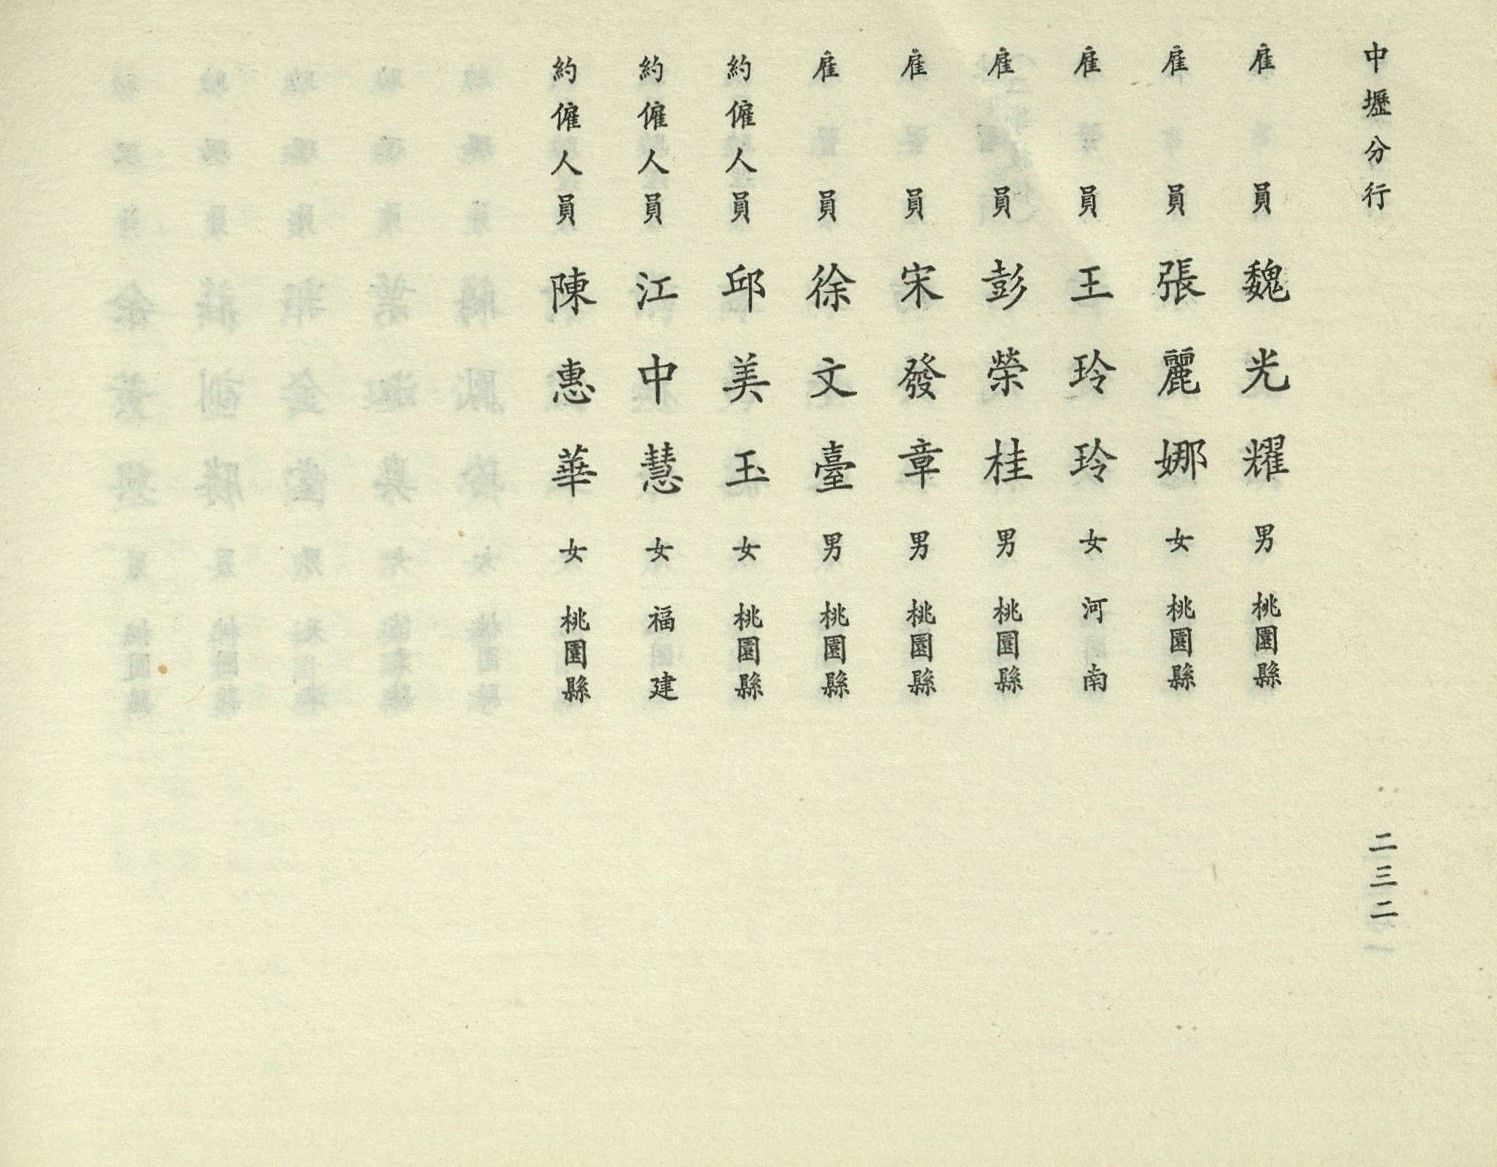 中壢分行
二三二
雇員 魏光耀 男 桃園縣
雇員 張麗娜 女 桃園縣
雇員 王玲玲 女 河南
雇員 彭榮桂 男 桃園縣
雇員 宋發章 男 桃園縣
雇員 徐文臺 男 桃園縣
約僱人員 邱美玉 女 桃園縣
約僱人員 江中慧 女 福建
約僱人員 陳惠華 女 桃園縣